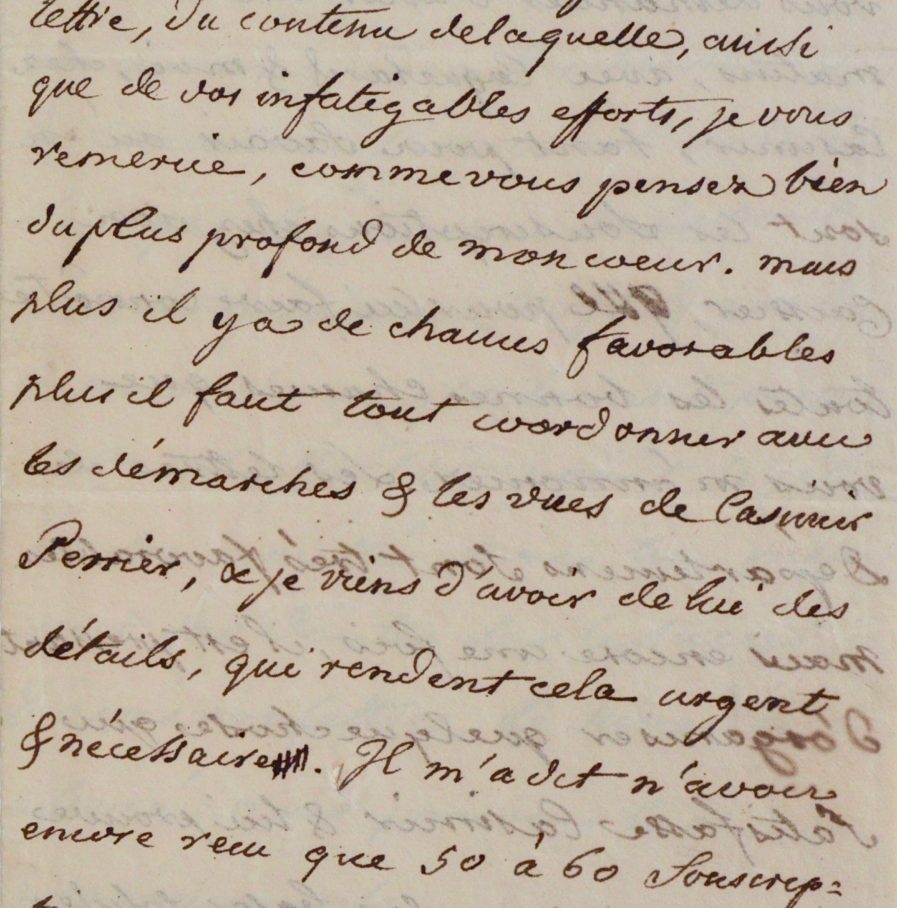 lettre, du contenu delaquelle, ainsi
que de vos infatigables efforts, je vous
remercie, comme vous pensez bien
du plus profond de mon coeur. mais
plus il y a de chances favorables
plus il faut tout coordonner avec
les démarches & les vues de Casimir
Perrier, & je viens d'avoir de lui des
détails, qui rendent cela urgent
& nécessaire. Il m'a dit n'avoir
encore reçu que 50 à 60 Souscrip=